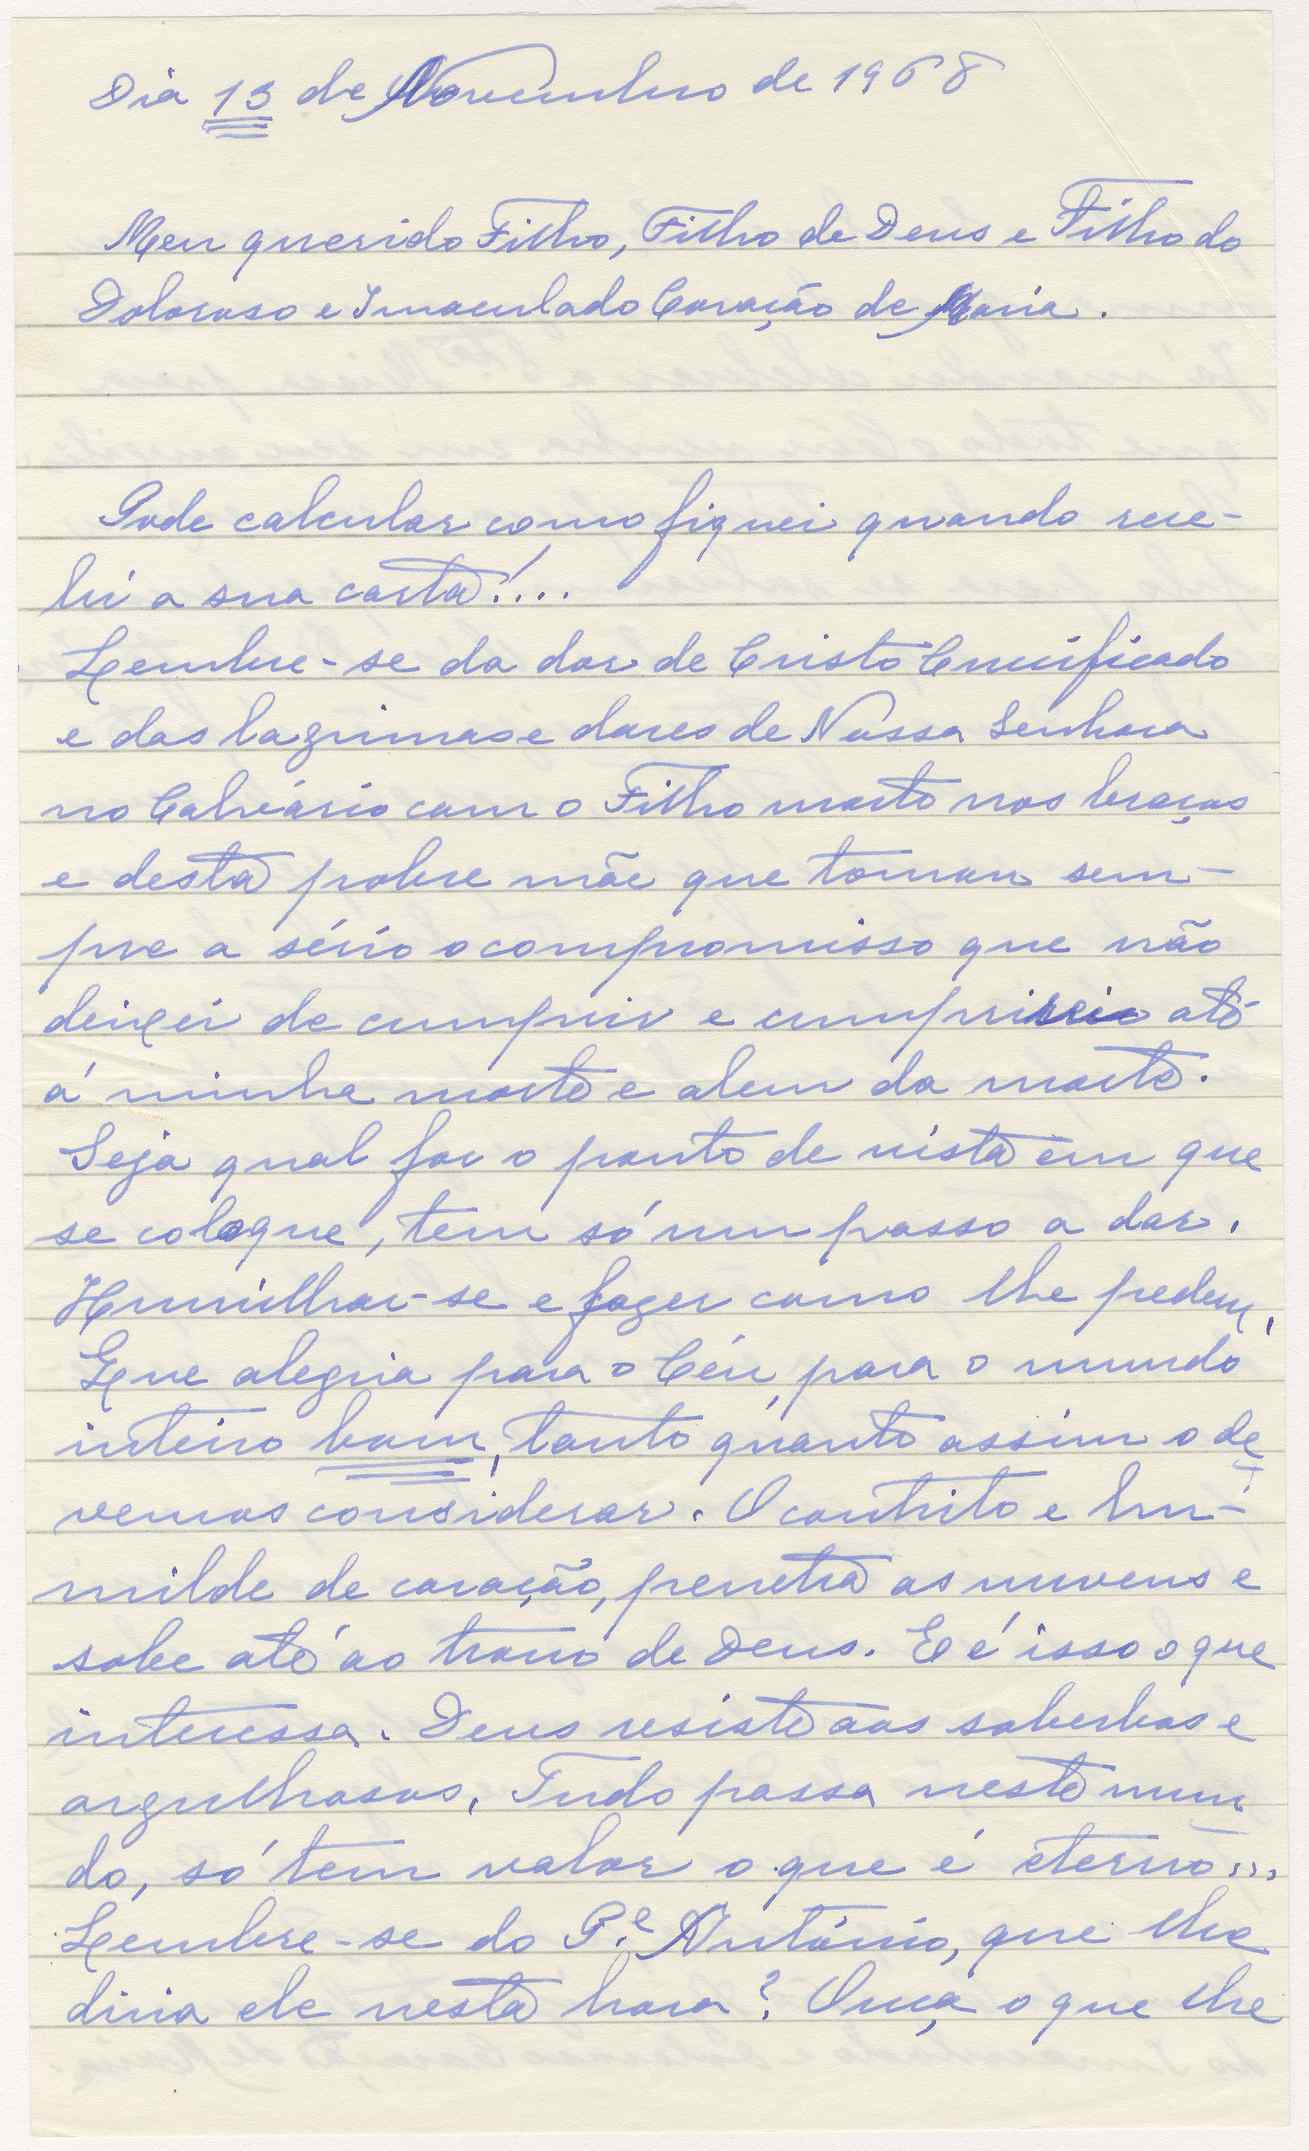 Dia 13 de Novembro de 1968
Meu querido Filho, Filho de Deus e Filho do
Doloroso e Imaculado Coração de Maria.
Pode calcular como fiquei quando rece-
bi a sua carta!....
Lembre-se da dor de Cristo Crucificado
e das lagrimas e dores de Nossa Senhora
no Calvário com o Filho morto nos braços
e desta pobre mãe que tomou sem-
pre a sério o compromisso que não
deixei de cumprir e cumprirei até
á minha morte e alem da morte.
Seja qual for o ponto de vista em que
se coloque, tem só um passo a dar.
Humilhar-se e fazer como lhe pedem,
Que alegria para o Céu, para o mundo
inteiro bom, tanto quanto assim o de
vemos considerar. O contrito e hu-
milde de coração, penetra as nuvens e
sobe até ao trono de Deus. E é isso o que
interessa. Deus resiste aos soberbos e
orgulhosos, Tudo passa neste mun
do, só tem valor o que é eterno...
Lembre-se do P.e António, que lhe
diria ele nesta hora? Ouça o que lhe